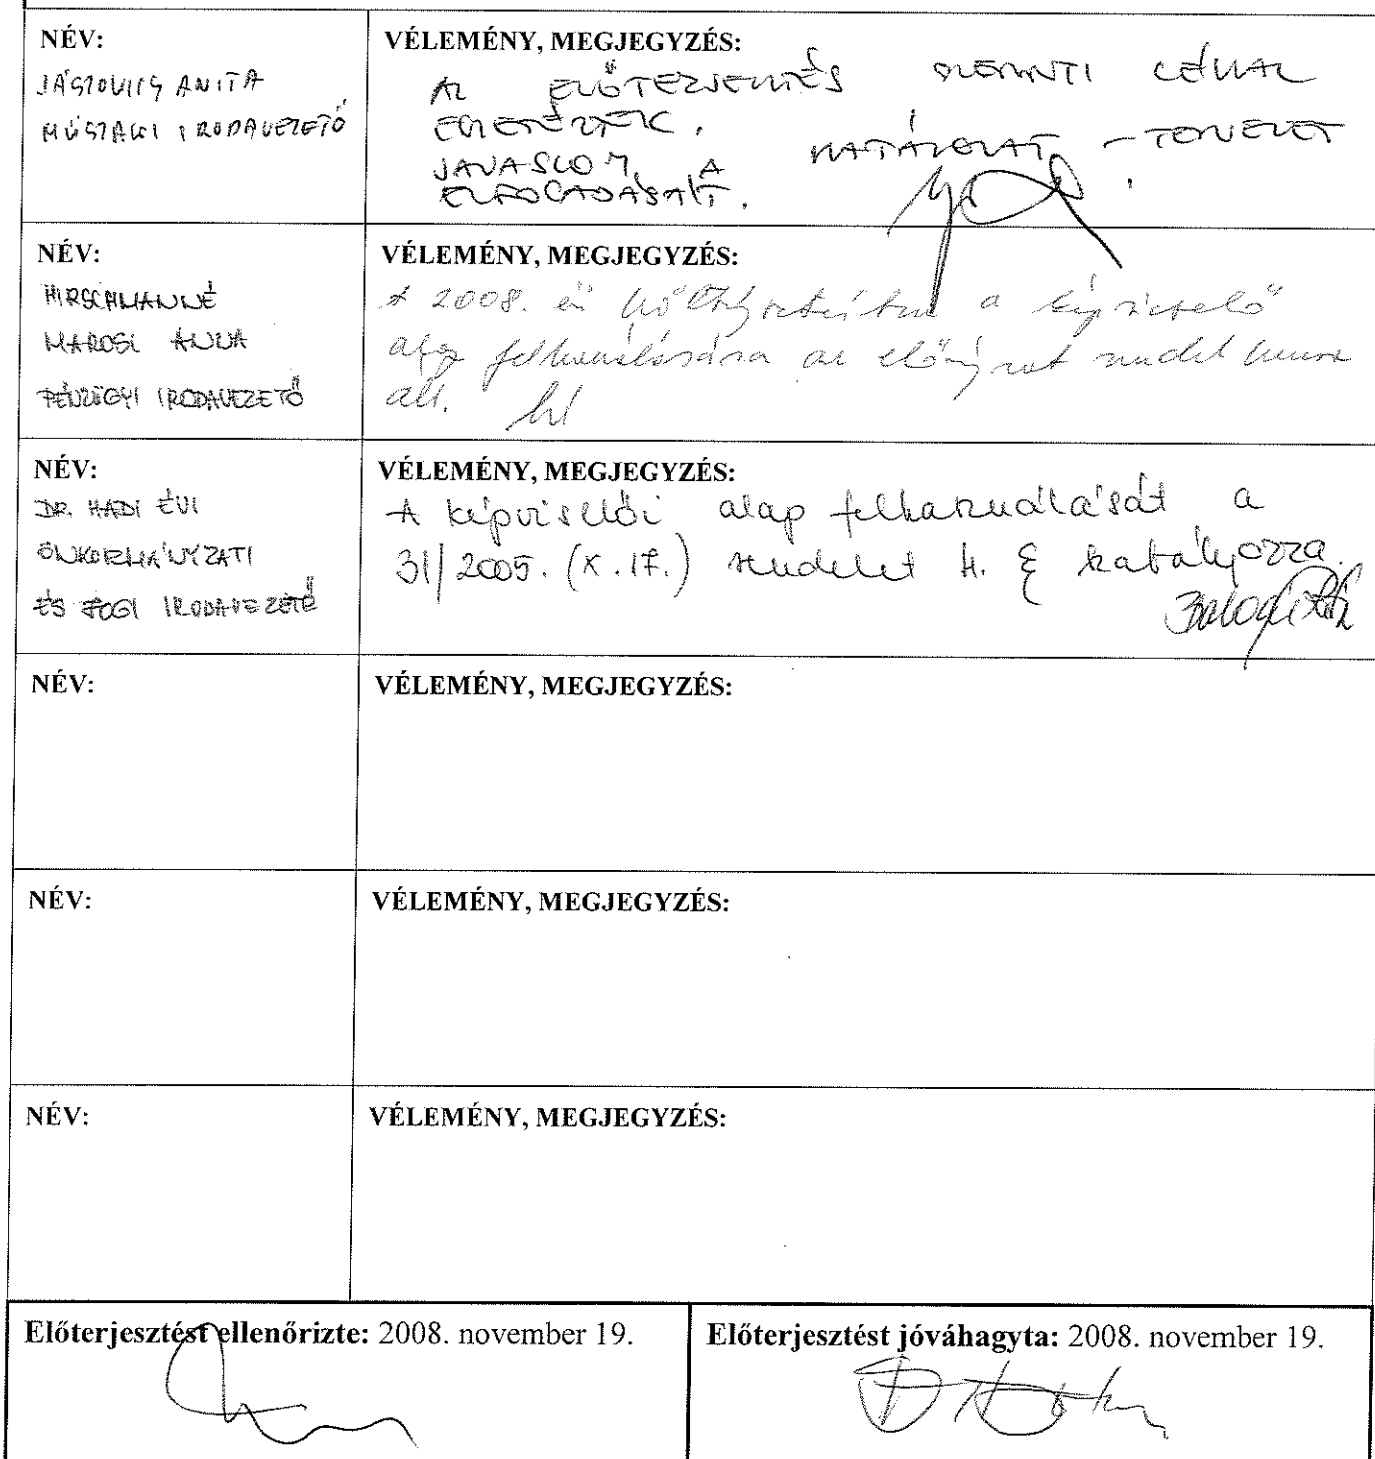 NÉV:
JÁSZOVICS ANITA
MŰSZAKI IRODAVEZETŐ
VÉLEMÉNY, MEGJEGYZÉS:
AZ ELŐTERJESZTÉS SZERINTI CÉLLAL
EGYETÉRTEK.
JAVASLOM A HATÁROZAT-TERVEZET
ELFOGADÁSÁT.
NÉV:
HIRSCHMANNÉ
MAROSI ANNA
PÉNZÜGYI IRODAVEZETŐ
VÉLEMÉNY, MEGJEGYZÉS:
A 2008. évi költségvetésben a képviselő
alap felhasználására az előirányzat rendelkezésre
áll.
NÉV:
DR. HADI ÉVI
ÖNKORMÁNYZATI
ÉS JOGI IRODAVEZETŐ
VÉLEMÉNY, MEGJEGYZÉS:
A képviselői alap felhasználását a
31/2005. (X.17.) rendelet 4. § szabályozza.
NÉV:
VÉLEMÉNY, MEGJEGYZÉS:
NÉV:
VÉLEMÉNY, MEGJEGYZÉS:
NÉV:
VÉLEMÉNY, MEGJEGYZÉS:
Előterjesztést ellenőrizte: 2008. november 19.
Előterjesztést jóváhagyta: 2008. november 19.